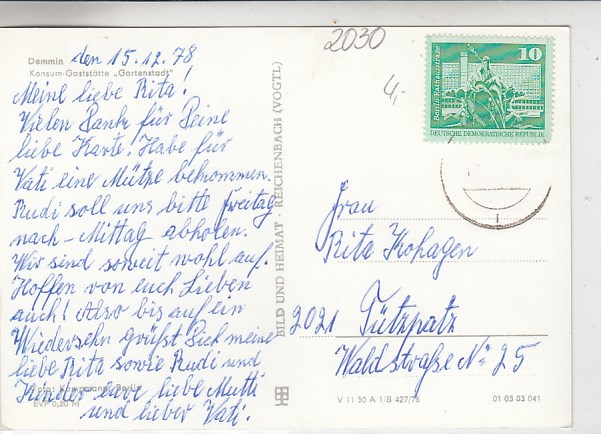 2030
4,-
Demmin
den 15.12.78
Konsum-Gaststätte „Gartenstadt"
Meine liebe Rita!
Vielen Dank für Deine
liebe Karte. Habe für
Vati eine Mütze bekommen.
Rudi soll uns bitte Freitag
nach-Mittag abholen.
Wir sind soweit wohl auf.
Hoffen von euch Lieben
auch! Also bis auf ein
Wiedersehn grüßt Dich meine
liebe Rita sowie Rudi und
Kinder eure liebe Mutti
und lieber Vati.
Foto: Kampmann, Berlin
EVP 0,20 M
BILD UND HEIMAT · REICHENBACH (VOGTL)
10
Berlin, Rathausstraße
DEUTSCHE DEMOKRATISCHE REPUBLIK
Frau
Rita Kohagen
2021 Tützpatz
Waldstraße № 25
V 11 50 A 1/B 427/78
01 03 03 041